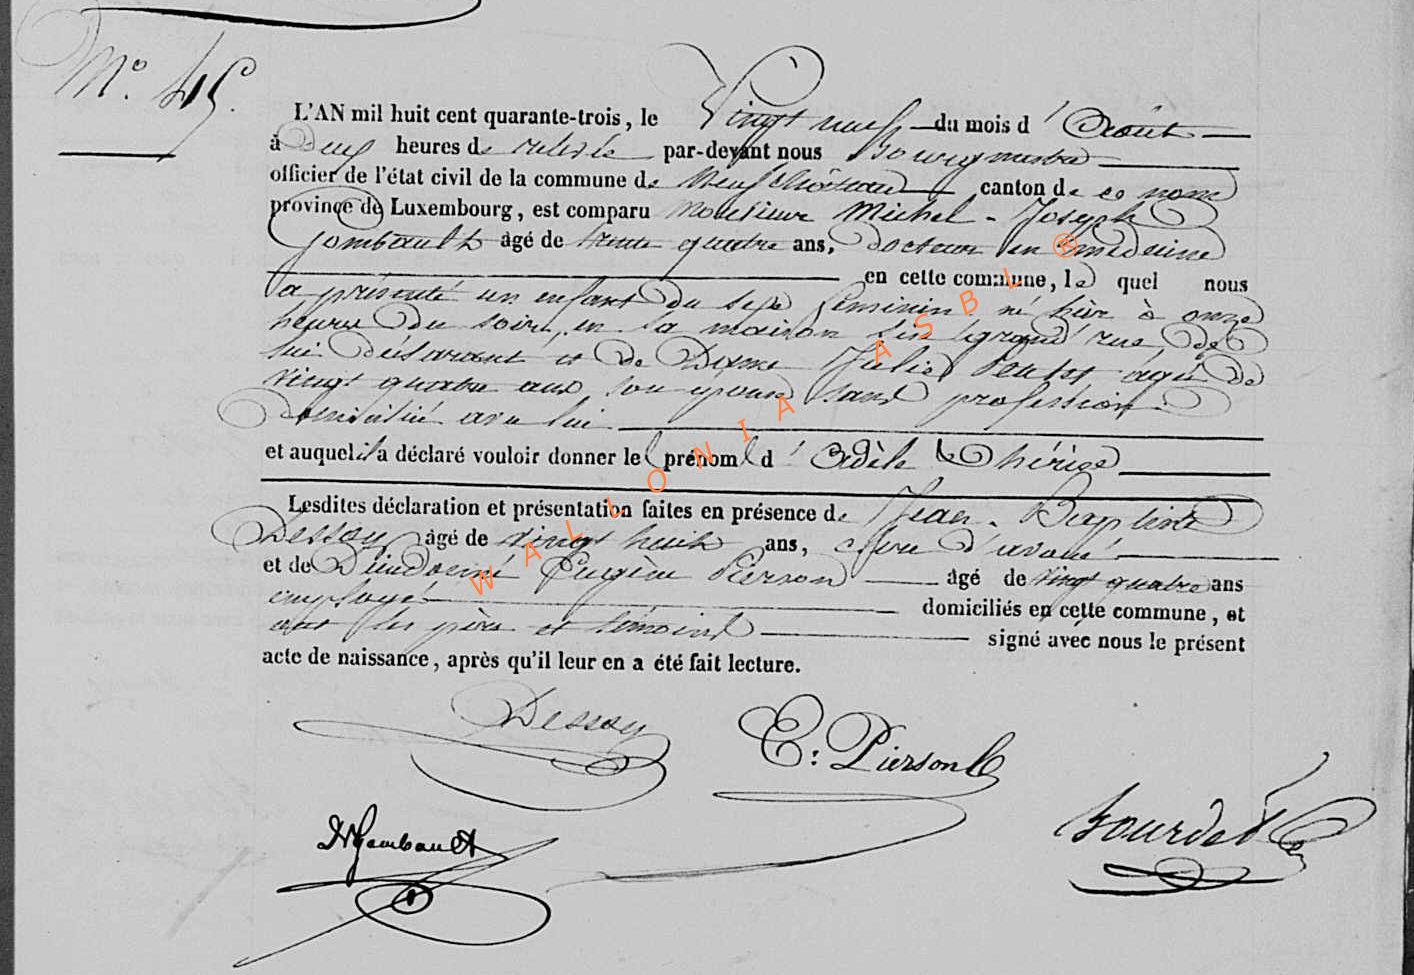 N° 45.
L'AN mil huit cent quarante-trois, le Vingt neuf du mois d'Août
à deux heures de relevée par-devant nous Bourgmestre
officier de l'état civil de la commune de Neufchâteau canton de ce nom
province de Luxembourg, est comparu Monsieur Michel-Joseph
Gombault âgé de trente quatre ans, docteur en médecine
en cette commune, le quel nous
a présenté un enfant du sexe féminin né hier à onze
heures du soir, en sa maison sis grand'rue, de
lui déclarant et de Dame Julie âgée de
vingt quatre ans son épouse sans profession
domicilié avec lui
et auquel il a déclaré vouloir donner le prénom d'Adèle Thérèse
Lesdites déclaration et présentation faites en présence de Jean-Baptiste
Dessoy âgé de vingt huit ans, clerc d'avoué
et de Dieudonné Eugène Pierson âgé de vingt quatre ans
employé domiciliés en cette commune, et
ont les père et témoins signé avec nous le présent
acte de naissance, après qu'il leur en a été fait lecture.
Dessoy
E: Pierson
Gombault
Bourdet
WALLONIA ASBL ®